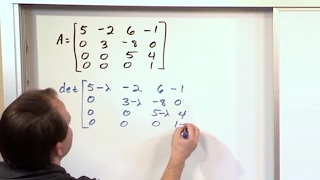 A = [5 -2 6 -1
0 3 -8 0
0 0 5 4
0 0 0 1]
det [5-λ -2 6 -1
0 3-λ -8 0
0 0 5-λ 4
0 0 0 1-